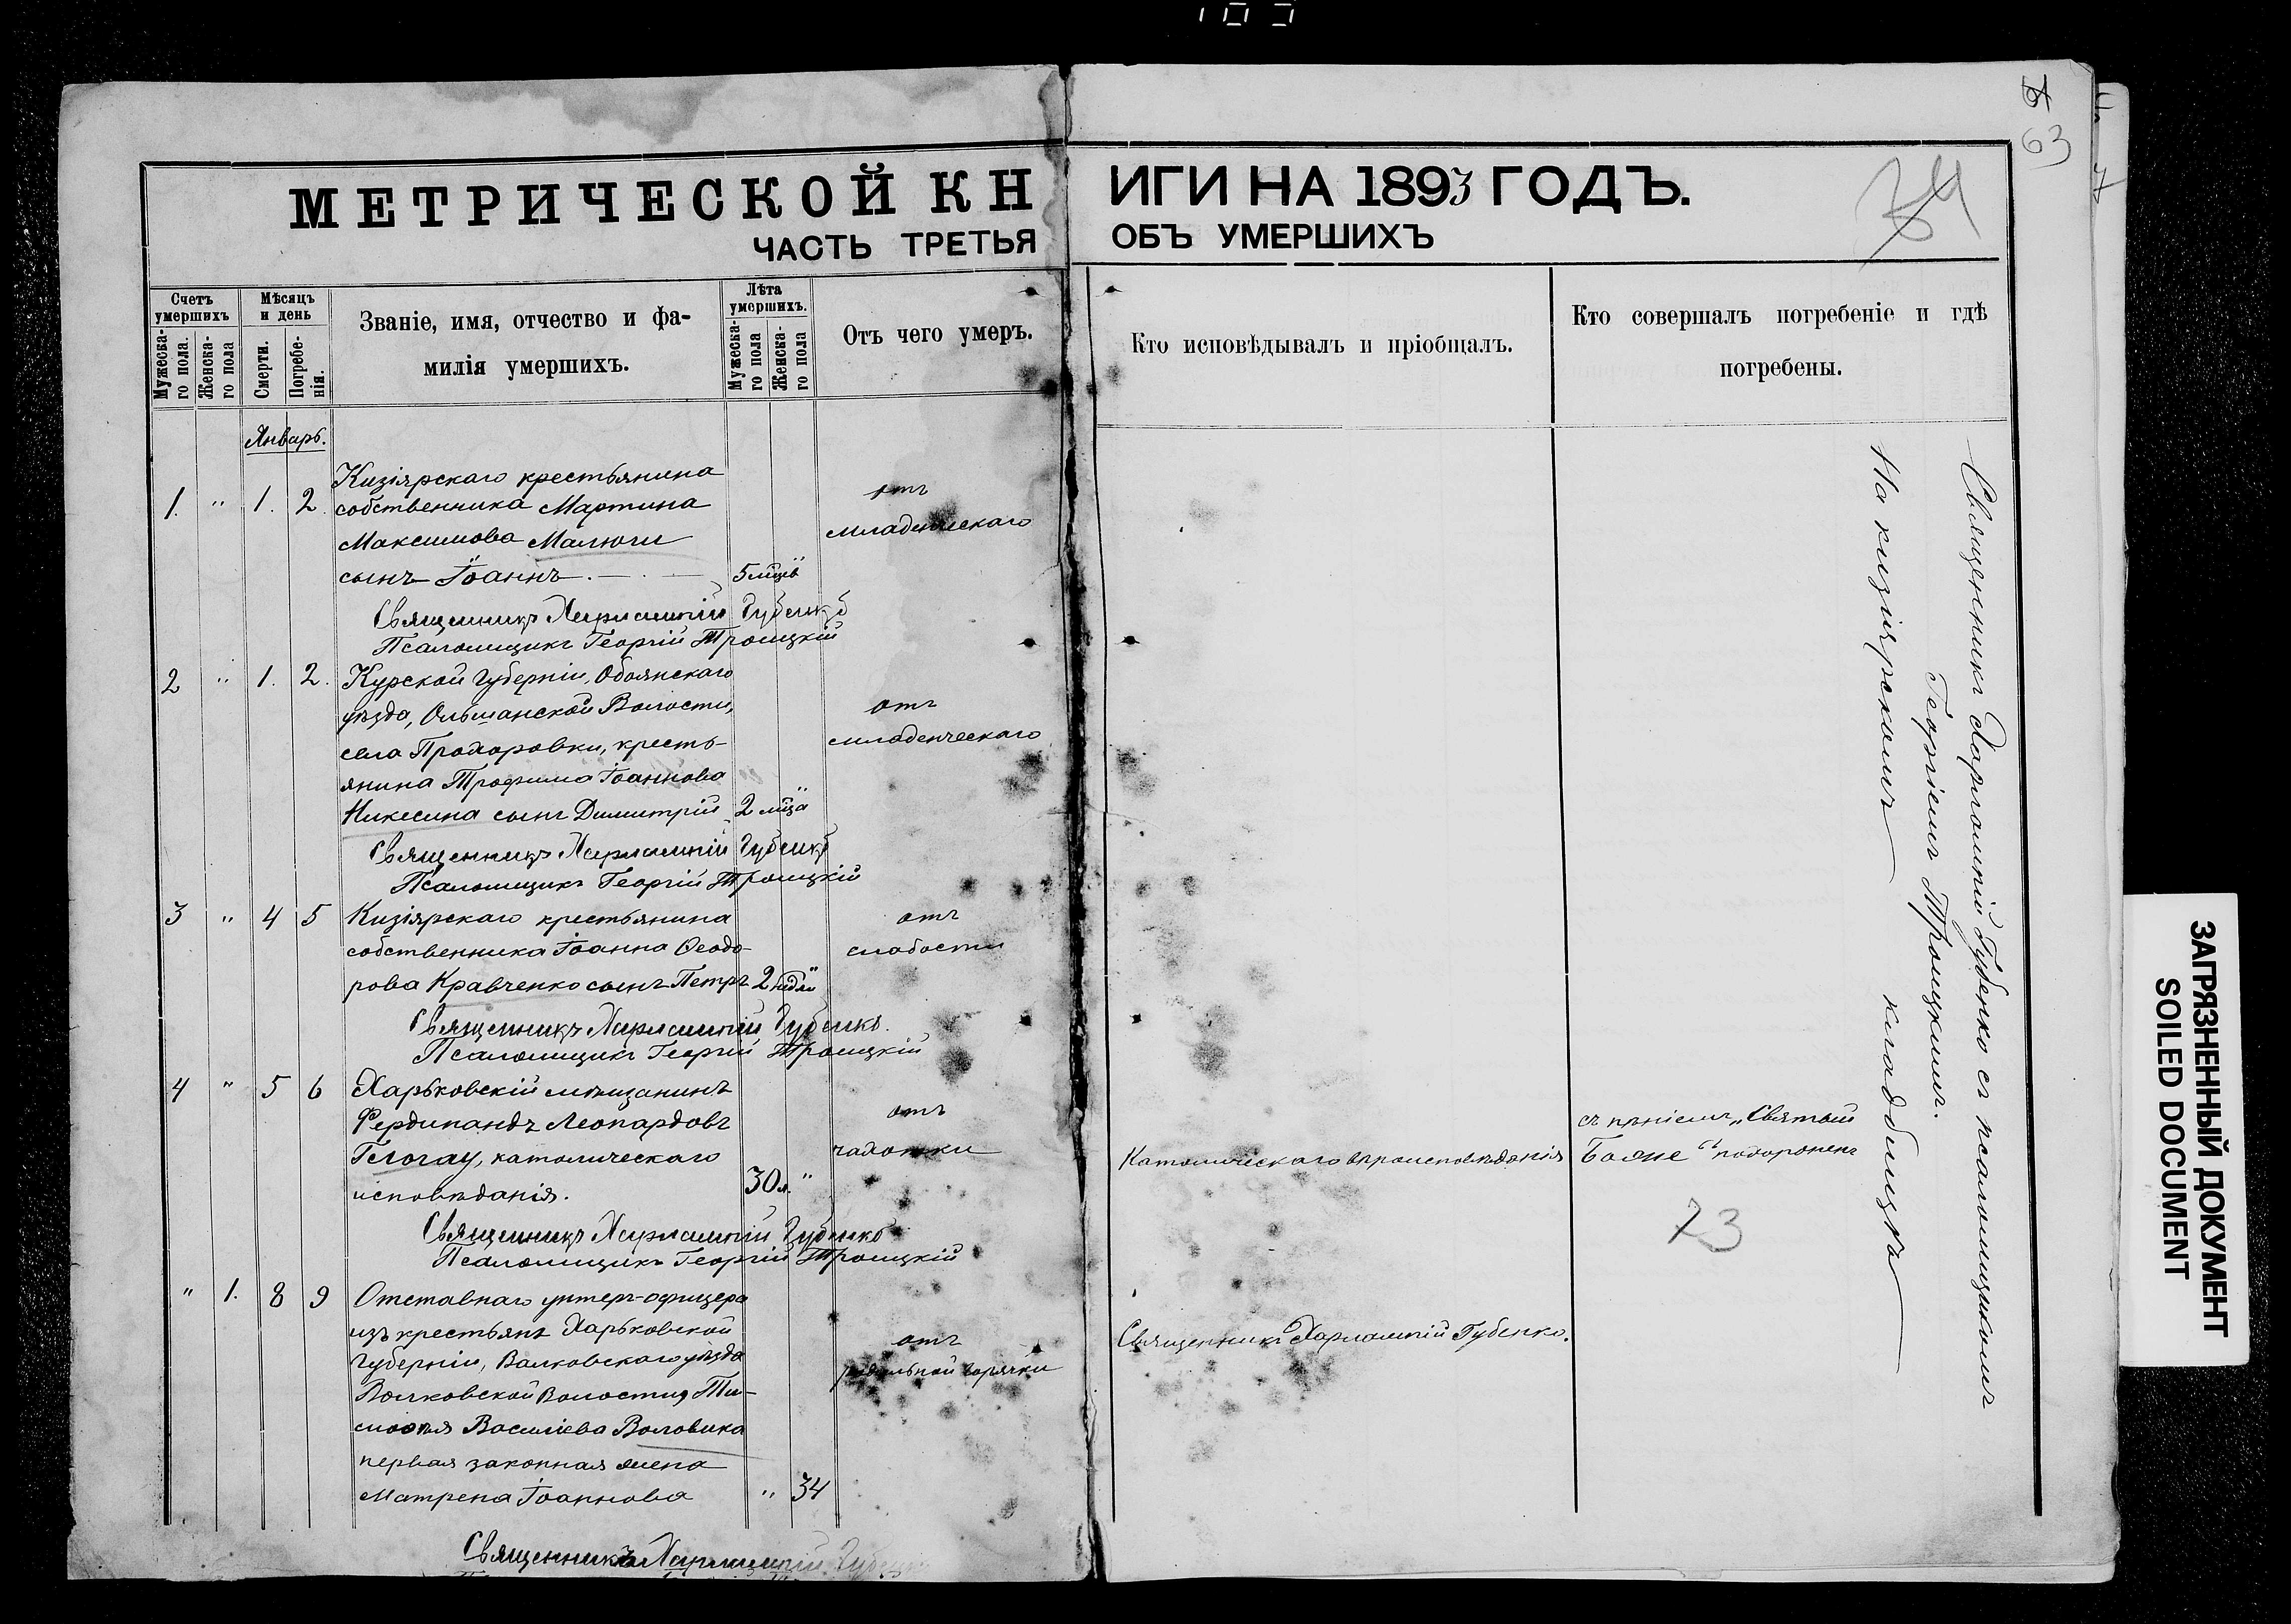 103
МЕТРИЧЕСКОЙ КНИГИ НА 1893 ГОДЪ.
ЧАСТЬ ТРЕТЬЯ ОБЪ УМЕРШИХЪ
63
34
Счетъ умершихъ
Мужеска-го пола.
Женска-го пола
Мѣсяцъ и день
Смерти.
Погребе-нія.
Званіе, имя, отчество и фа-
милія умершихъ.
Лѣта умершихъ.
Мужеска-го пола
Женска-го пола
Отъ чего умеръ.
Кто исповѣдывалъ и пріобщалъ.
Кто совершалъ погребеніе и гдѣ
погребены.
Январь.
Кизіярскаго крестьянина
1. " 1. 2. собственника Мартина отъ
Максимова Малюги младенческаго
сынъ Іоаннъ. 5 мцѣв "
Священникъ Харлампій Губенко
Псаломщикъ Георгій Троицкій
2 " 1. 2. Курской Губерніи, Обоянскаго
уѣзда, Ольшанской Волости, отъ
села Прохоровки, кресть- младенческаго
янина Трофима Іоаннова
Никесина сынъ Димитрій 2 мцa "
Священникъ Харлампій Губенко
Псаломщикъ Георгій Троицкій
3 " 4 5 Кизіярскаго крестьянина отъ
собственника Іоанна Ѳеодо- слабости
рова Кравченко сынъ Петръ 2 недѣли "
Священникъ Харлампій Губенко.
Псаломщикъ Георгій Троицкій
4 " 5 6 Харьковскій мѣщанинъ
Фердинандъ Леопардовъ отъ
католическаго чахотки
исповѣданія. 30 л. "
Католическаго вѣроисповѣданія
съ пѣніемъ „Святый
Боже" похороненъ
23
Священникъ Харлампій Губенко
Псаломщикъ Георгій Троицкій
" 1. 8 9 Отставнаго унтеръ-офицера
изъ крестьянъ Харьковской отъ
Губерніи, Валковскаго уѣзда родильной горячки
Валковской Волости, Ти-
моѳея Василіева Воловика
первая законная жена
Матрена Іоаннова " 34
Священникъ Харлампій Губенко.
Священникъ Харлампій Губенко
Священникъ Харлампій Губенко съ псаломщикомъ
Георгіемъ Троицкимъ.
На кизіярскомъ кладбищѣ
ЗАГРЯЗНЕННЫЙ ДОКУМЕНТ
SOILED DOCUMENT